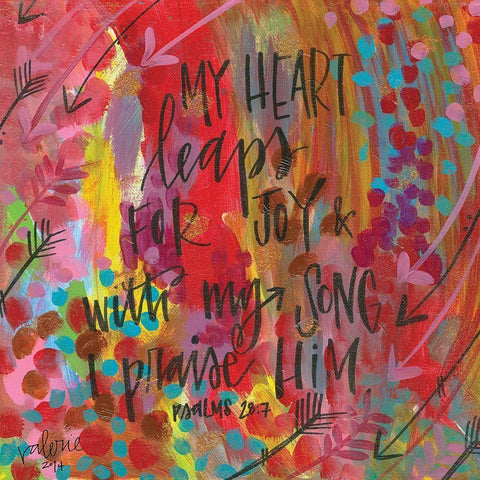 MY HEART
leaps
FOR JOY &
with my SONG
I praise HIM
PSALMS 28:7
valerie
2014